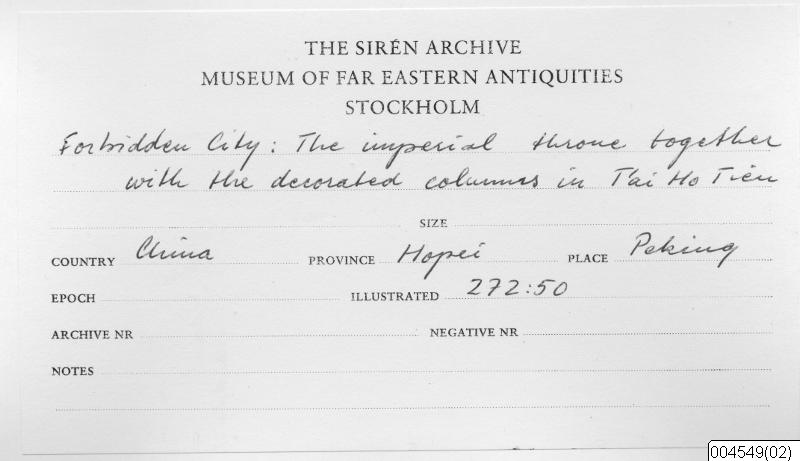 THE SIRÉN ARCHIVE
MUSEUM OF FAR EASTERN ANTIQUITIES
STOCKHOLM
Forbidden City: The imperial throne together
with the decorated columns in T'ai Ho Tien
SIZE
COUNTRY China PROVINCE Hopei PLACE Peking
EPOCH ILLUSTRATED 272:50
ARCHIVE NR NEGATIVE NR
NOTES
004549(02)